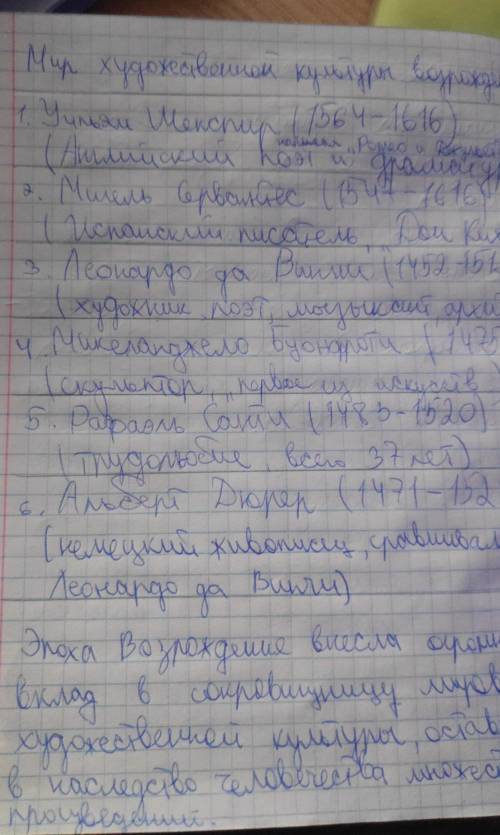 Мир художественной культуры возрожде
1. Уильям Шекспир (1564-1616)
написал "Ромео и
(Английский поэт и драматур
2. Мигель Сервантес (1547-1616)
(Испанский писатель, "Дон Ких
3. Леонардо да Винчи (1452-151
(художник, поэт, музыкант, архи
4. Микеланджело Буонаротти (1475
(скульптор, "первое из искусств
5. Рафаэль Санти (1483-1520)
(трудолюбие, всего 37 лет)
6. Альберт Дюрер (1471-152
(немецкий живописец, сравнивал
Леонардо да Винчи)
Эпоха Возрождение внесла огром
вклад в сокровищницу миров
художественной культуры, остав
в наследство человечества множест
произведений.